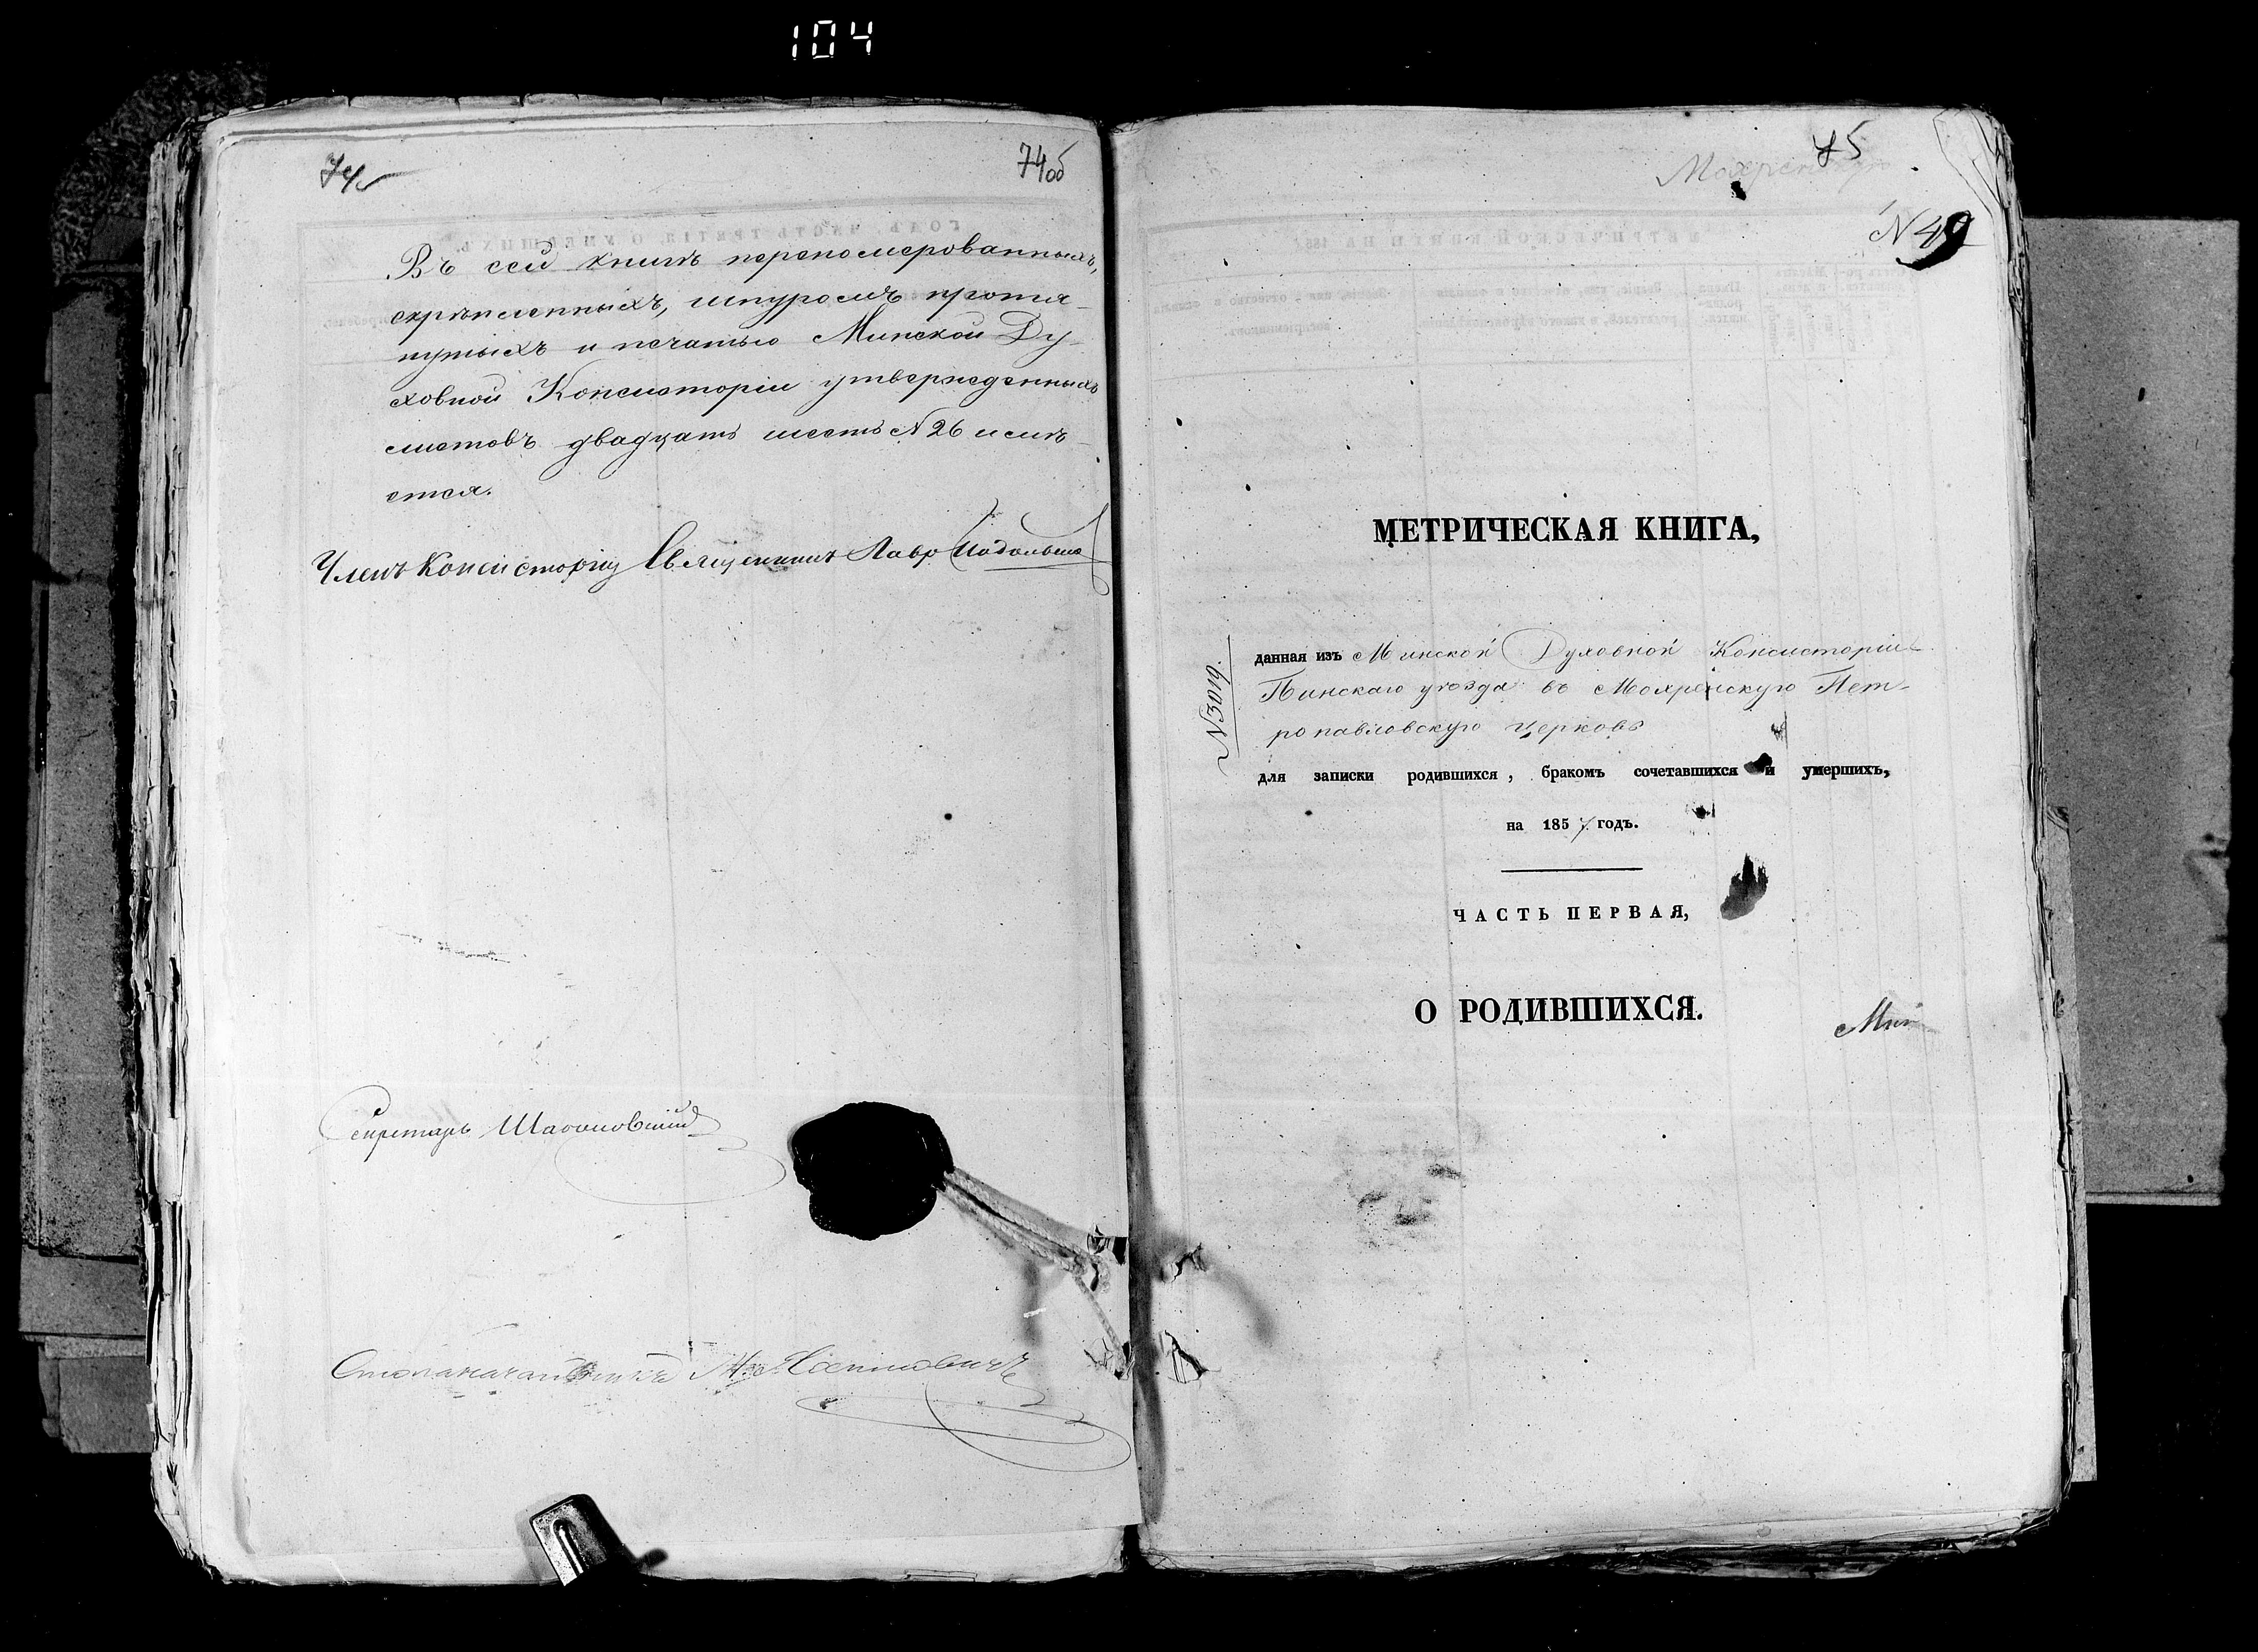 104
74об
Въ сей книгѣ перепомерованныхъ,
скрѣпленныхъ, шнуромъ протя-
нутыхъ и печатью Минской Ду-
ховной Консисторіи утвержденныхъ
листовъ двадцать шесть N 26 имѣ-
ется.
Членъ Консисторіи Священникъ Лавр
Секретарь
Столоначальникъ
75
Мохренскую
N 49
МЕТРИЧЕСКАЯ КНИГА,
N 3019.
данная изъ Минской Духовной Консисторіи
Пинскаго уѣзда въ Мохренскую Пет-
ропавловскую церковь
для записки родившихся, бракомъ сочетавшихся и умершихъ,
на 1857 годъ.
ЧАСТЬ ПЕРВАЯ,
О РОДИВШИХСЯ.
Мин